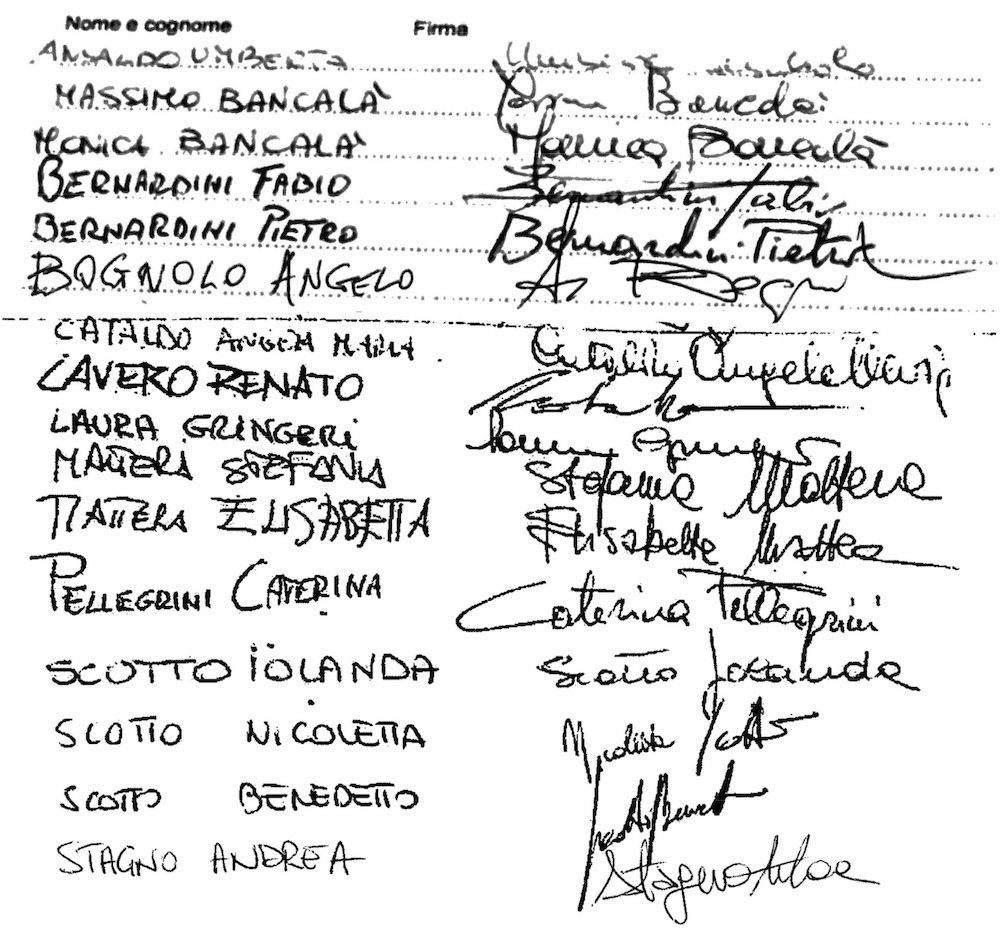 Nome e cognome Firma
ANSALDO UMBERTA
MASSIMO BANCALÀ
MONICA BANCALÀ Monica Bancalà
BERNARDINI FABIO Bernardini Fabio
BERNARDINI PIETRO Bernardini Pietro
BOGNOLO ANGELO
CATALDO ANGELA MARIA Cataldo Angela Maria
CAVERO RENATO
LAURA GRINGERI
MATTERA STEFANIA Stefania Mattera
MATTERA ELISABETTA Elisabetta Mattera
PELLEGRINI CATERINA Caterina Pellegrini
SCOTTO IOLANDA Scotto Jolanda
SCOTTO NICOLETTA Nicoletta Scotto
SCOTTO BENEDETTO
STAGNO ANDREA Stagno